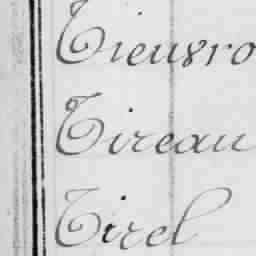 Tieuvro
Tireau
Tirel